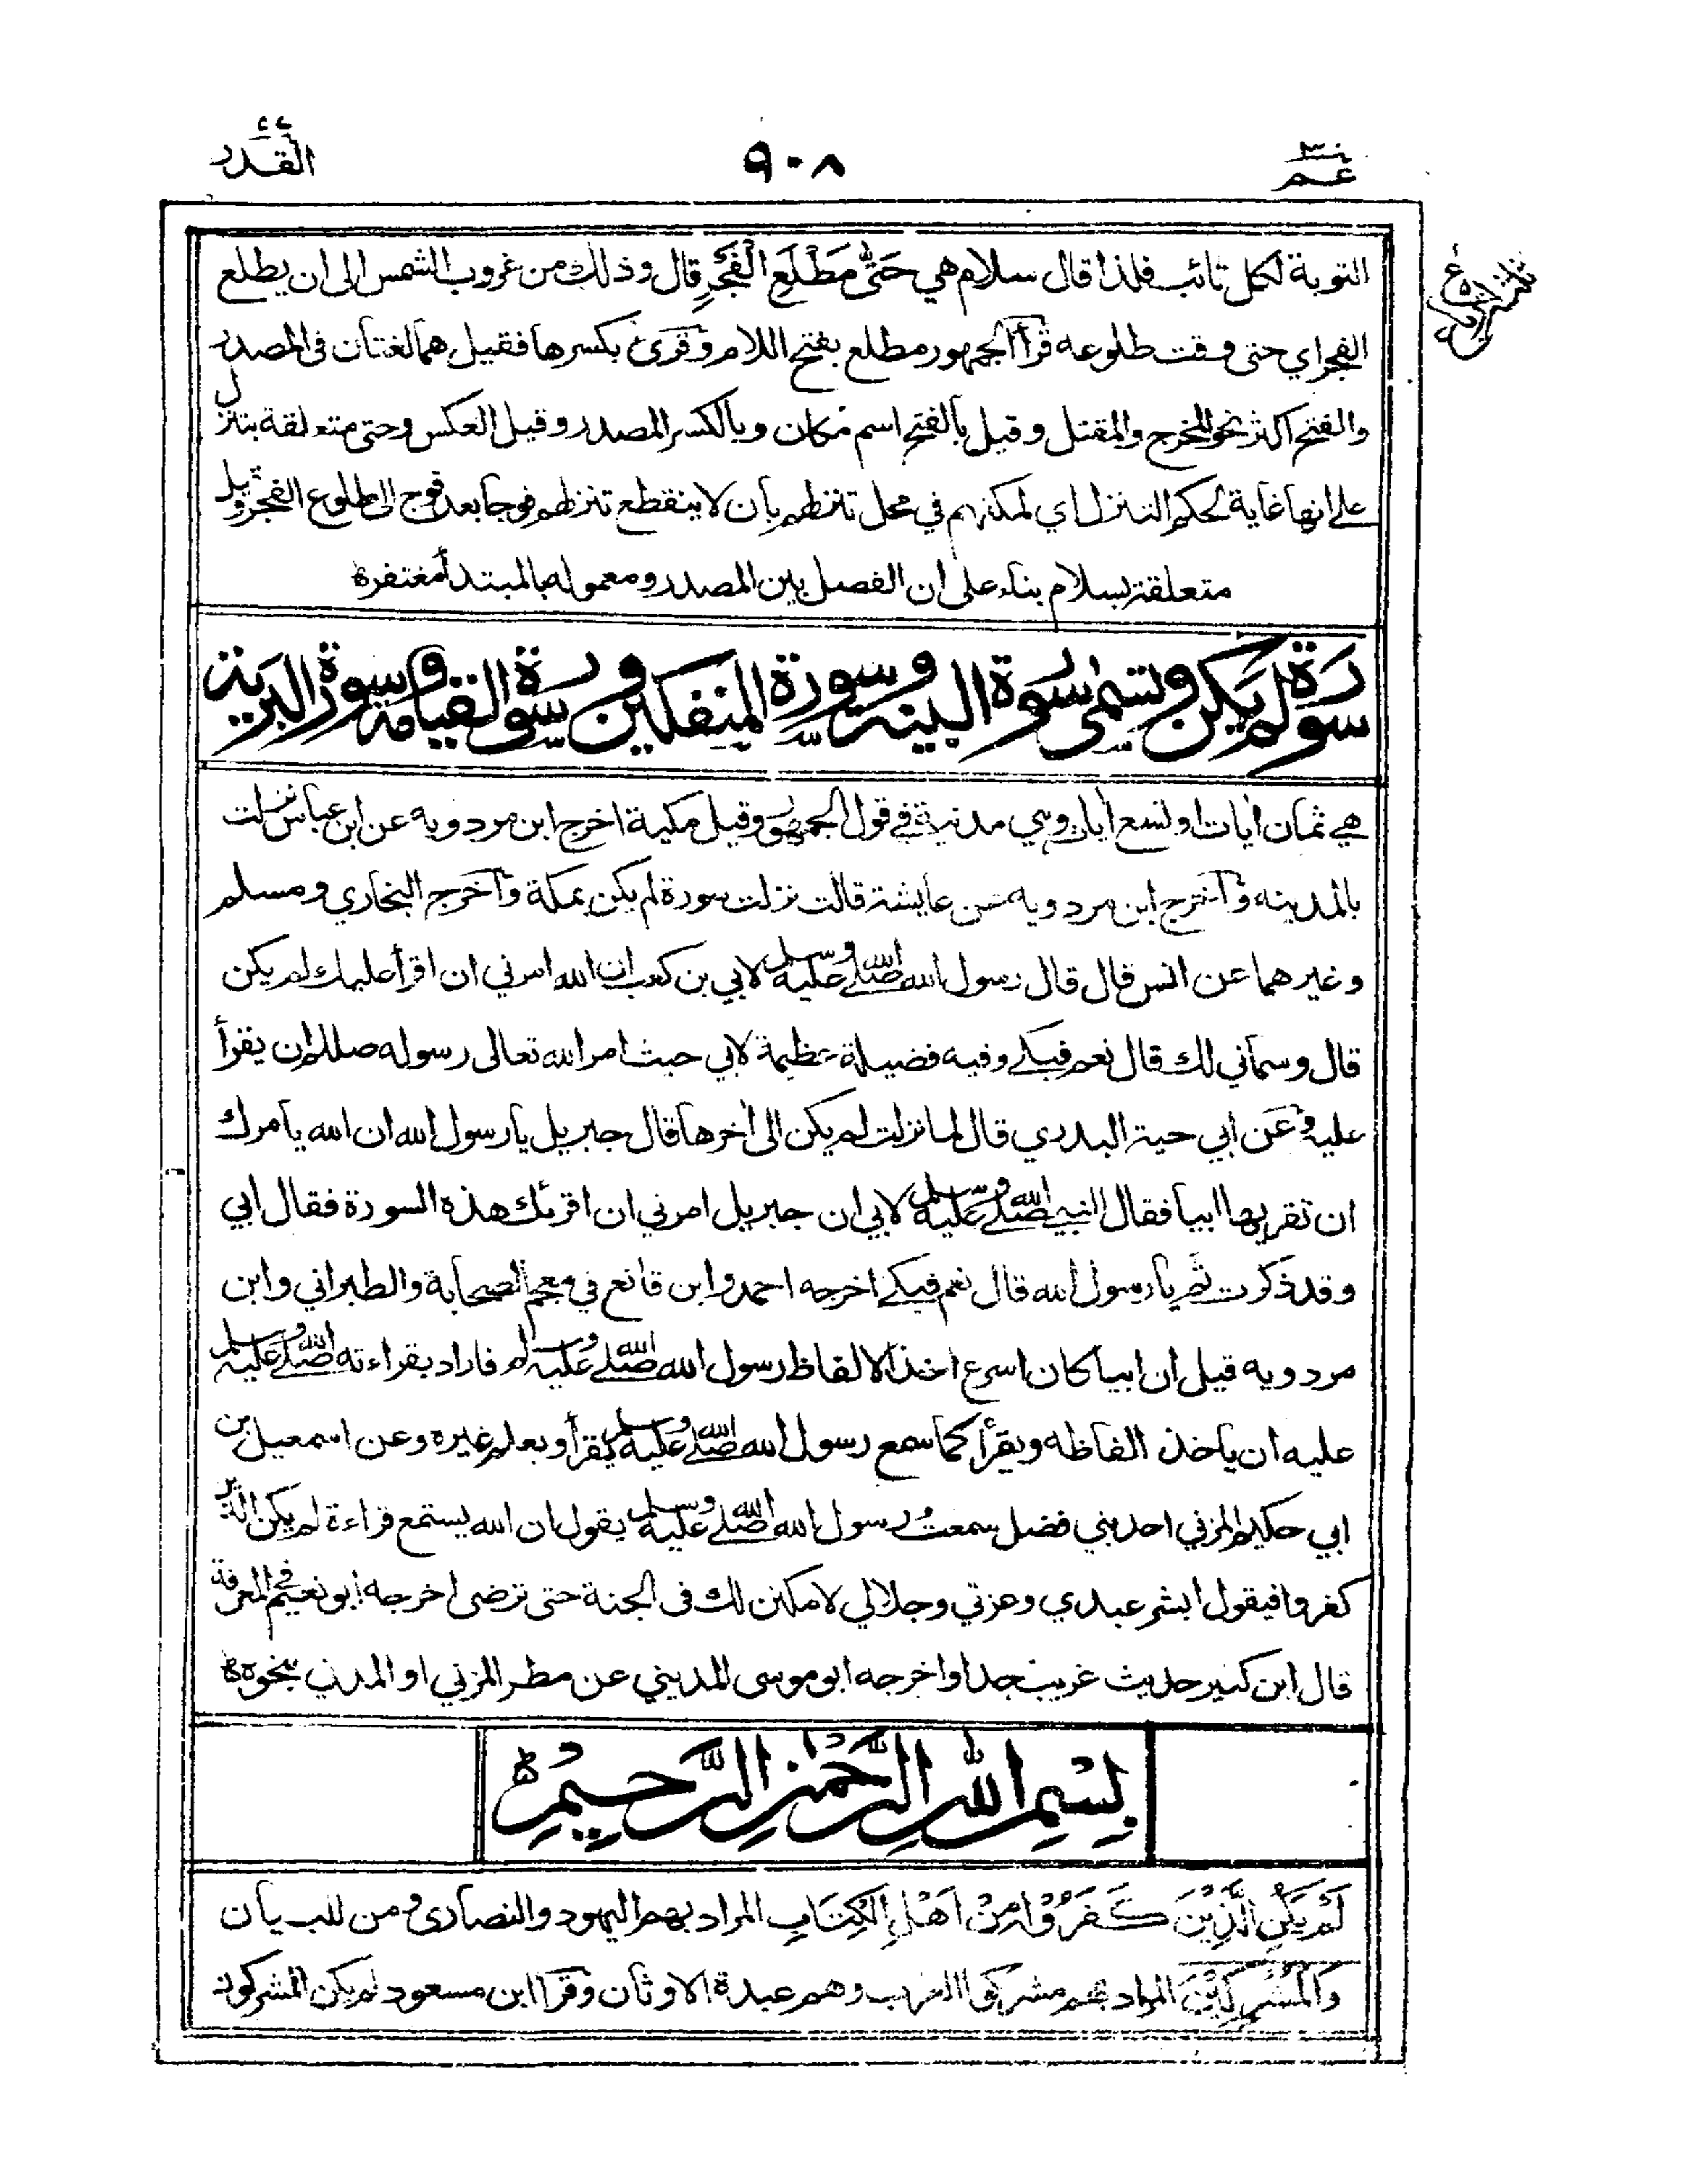 عم ٣٠
٩٠٨
القدر
التوبة لكل تائب فلذا قال سلام هي حَتّٰى مَطْلَعِ الْفَجْرِ قال وذلك من غروب الشمس الى ان يطلع
الفجر اي حتى وقت طلوعه قرأ الجمهور مطلع بفتح اللام وقرئ بكسرها فقيل هما لغتان فى المصدر
والفتح اكثر نحو المخرج والمقتل وقيل بالفتح اسم مكان وبالكسر المصدر وقيل العكس وحتى متعلقة بتنزل
على انها غاية لحكم التنزل اي لمكثهم في محل تنزلهم بان لا ينقطع تنزلهم فوجا بعد فوج الى طلوع الفجر وقيل
متعلقة بسلام بناء على ان الفصل بين المصدر ومعموله بالمبتدأ مغتفرة
سورة لم يكن وتسمى سورة البينة وسورة المنفكين وسورة القيامة وسورة البرية
هي ثمان ايات او تسع ايات وهي مدنية في قول الجمهور وقيل مكية اخرج ابن مردويه عن ابن عباس نزلت
بالمدينه واخرج ابن مردويه عن عايشة قالت نزلت سورة لم يكن بمكة واخرج البخاري ومسلم
وغيرهما عن انس قال قال رسول الله صلى الله عليه وسلم لابي بن كعب ان الله امرني ان اقرأ عليك لم يكن
قال وسماني لك قال نعم فبكى وفيه فضيلة عظيمة لابي حيث امر الله تعالى رسوله صللم ان يقرأ
عليه وعن ابي حية البدري قال لما نزلت لم يكن الى اخرها قال جبريل يا رسول الله ان الله يأمرك
ان تقريها ابيا فقال النبي صلى الله عليه وسلم لابي ان جبريل امرني ان اقرئك هذه السورة فقال ابي
وقد ذكرت ثم يا رسول الله قال نعم فبكى اخرجه احمد وابن قانع في معجم الصحابة والطبراني وابن
مردويه قيل ان ابيا كان اسرع اخذ الالفاظ رسول الله صلى الله عليه وسلم فاراد بقراءته صلى الله عليه وسلم
عليه ان ياخذ الفاظه ويقرأ كما سمع رسول الله صلى الله عليه وسلم يقرأ ويعلم غيره وعن اسمعيل بن
ابي حكيم المزني احد بني فضل سمعت رسول الله صلى الله عليه وسلم يقول ان الله يستمع قراءة لم يكن الذين
كفروا فيقول ابشر عبدي وعزتي وجلالي لامكنن لك فى الجنة حتى ترضى اخرجه ابو نعيم في المعرفة
قال ابن كثير حديث غريب جدا واخرجه ابو موسى المديني عن مطر المزني او المدني بنحوه
بِسْمِ اللهِ الرَّحْمٰنِ الرَّحِيْمِ
لَمْ يَكُنِ الَّذِيْنَ كَفَرُوْا مِنْ اَهْلِ الْكِتَابِ المراد بهم اليهود والنصارى ومن للبيان
وَالْمُشْرِكِيْنَ المراد بهم مشركوا العرب وهم عبدة الاوثان وقرا ابن مسعود لم يكن المشركون